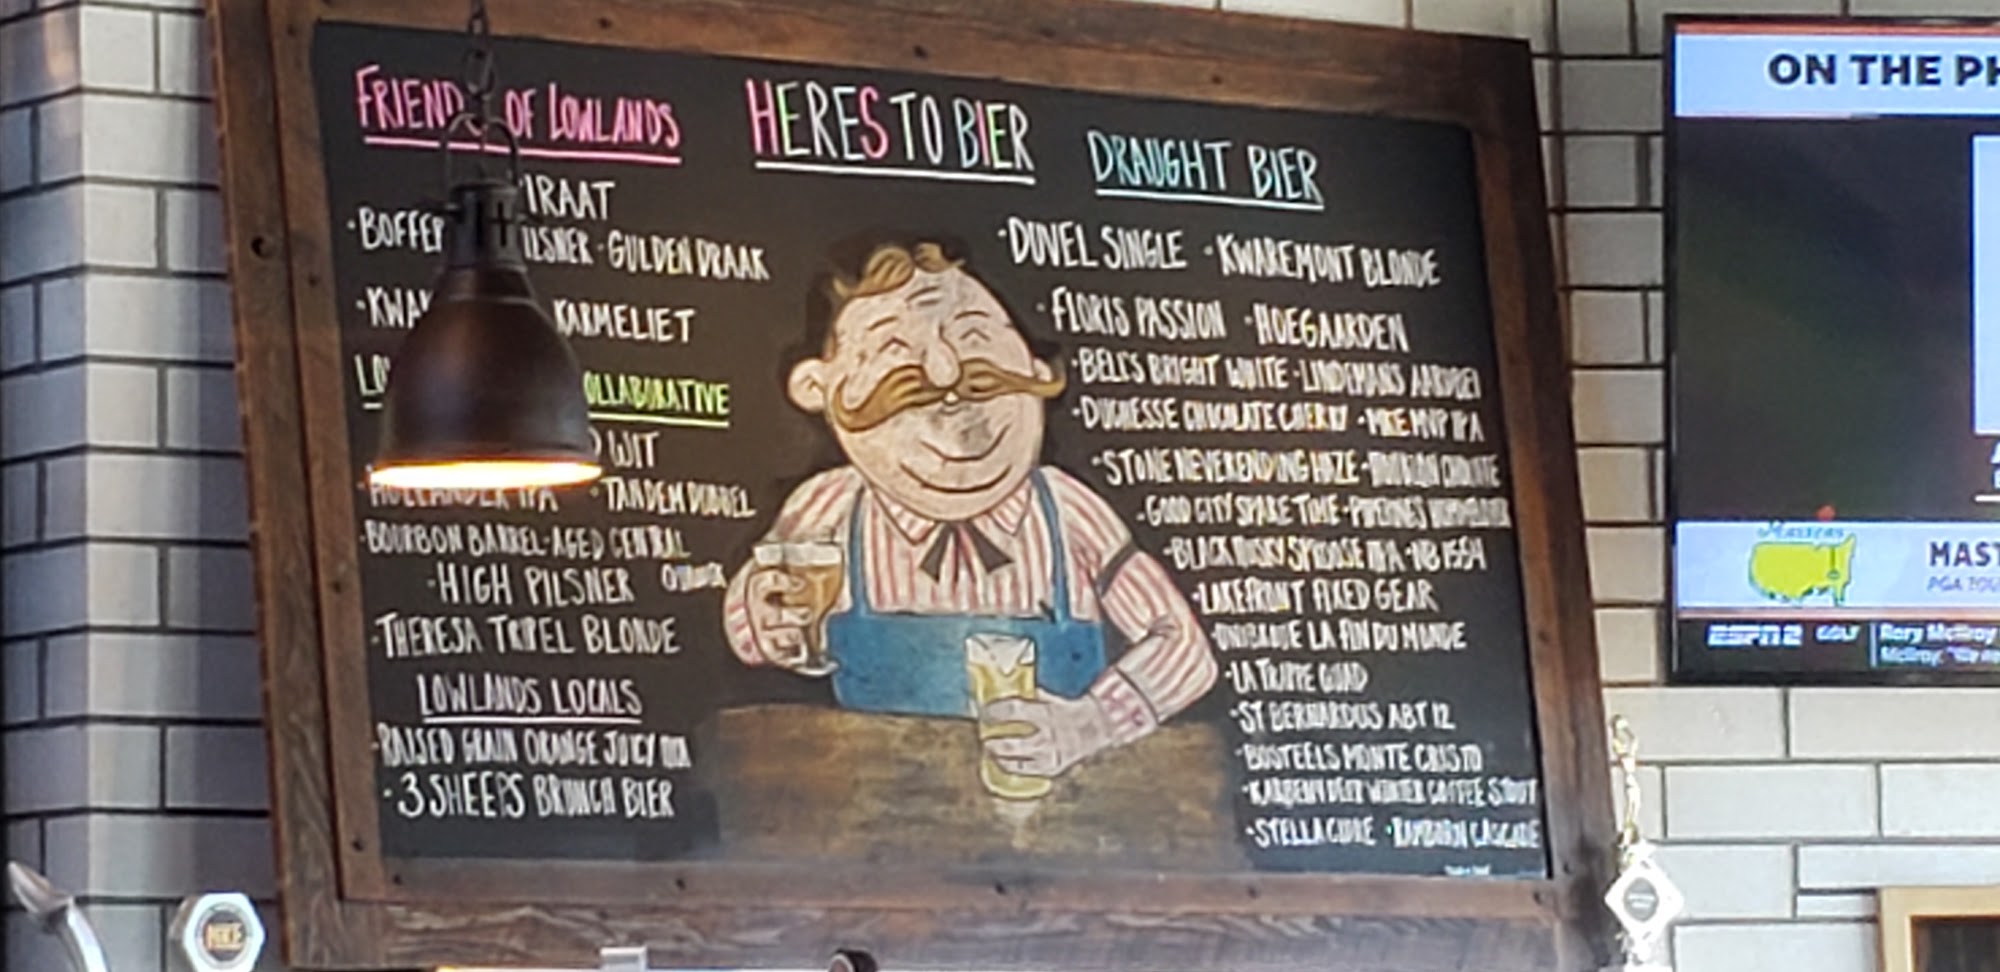 FRIENDS OF LOWLANDS
IRAAT
·BOFFER ILSNER ·GULDEN DRAAK
·KWAK KARMELIET
LO OLLABORATIVE
WIT
·HOLLANDER IPA ·TANDEM DUBBEL
·BOURBON BARREL-AGED CENTRAL
·HIGH PILSNER
·THERESA TRIPEL BLONDE
LOWLANDS LOCALS
·RAISED GRAIN ORANGE JUICY
·3 SHEEPS BRUNCH BIER
HERES TO BIER
DRAUGHT BIER
·DUVEL SINGLE ·KWAREMONT BLONDE
·FLORIS PASSION ·HOEGAARDEN
·BELL'S BRIGHT WHITE ·LINDEMANS AARDBEI
·DUCHESSE CHOCOLATE CHERRY ·MKE MVP IPA
·STONE NEVERENDING HAZE
·GOOD CITY SPARE TIME
·BLACK HUSKY SPROOSE IPA ·NB 1554
·LAKEFRONT FIXED GEAR
·UNIBROUE LA FIN DU MONDE
·LA TRAPPE QUAD
·ST BERNARDUS ABT 12
·BOSTEELS MONTE CRISTO
WINTER COFFEE STOUT
·STELLA CIDRE ·RAMBORN CASCADE
ON THE PH
Masters
MAST
PGA TOU
ESPN2 GOLF
Rory McIlroy
McIlroy:
MKE